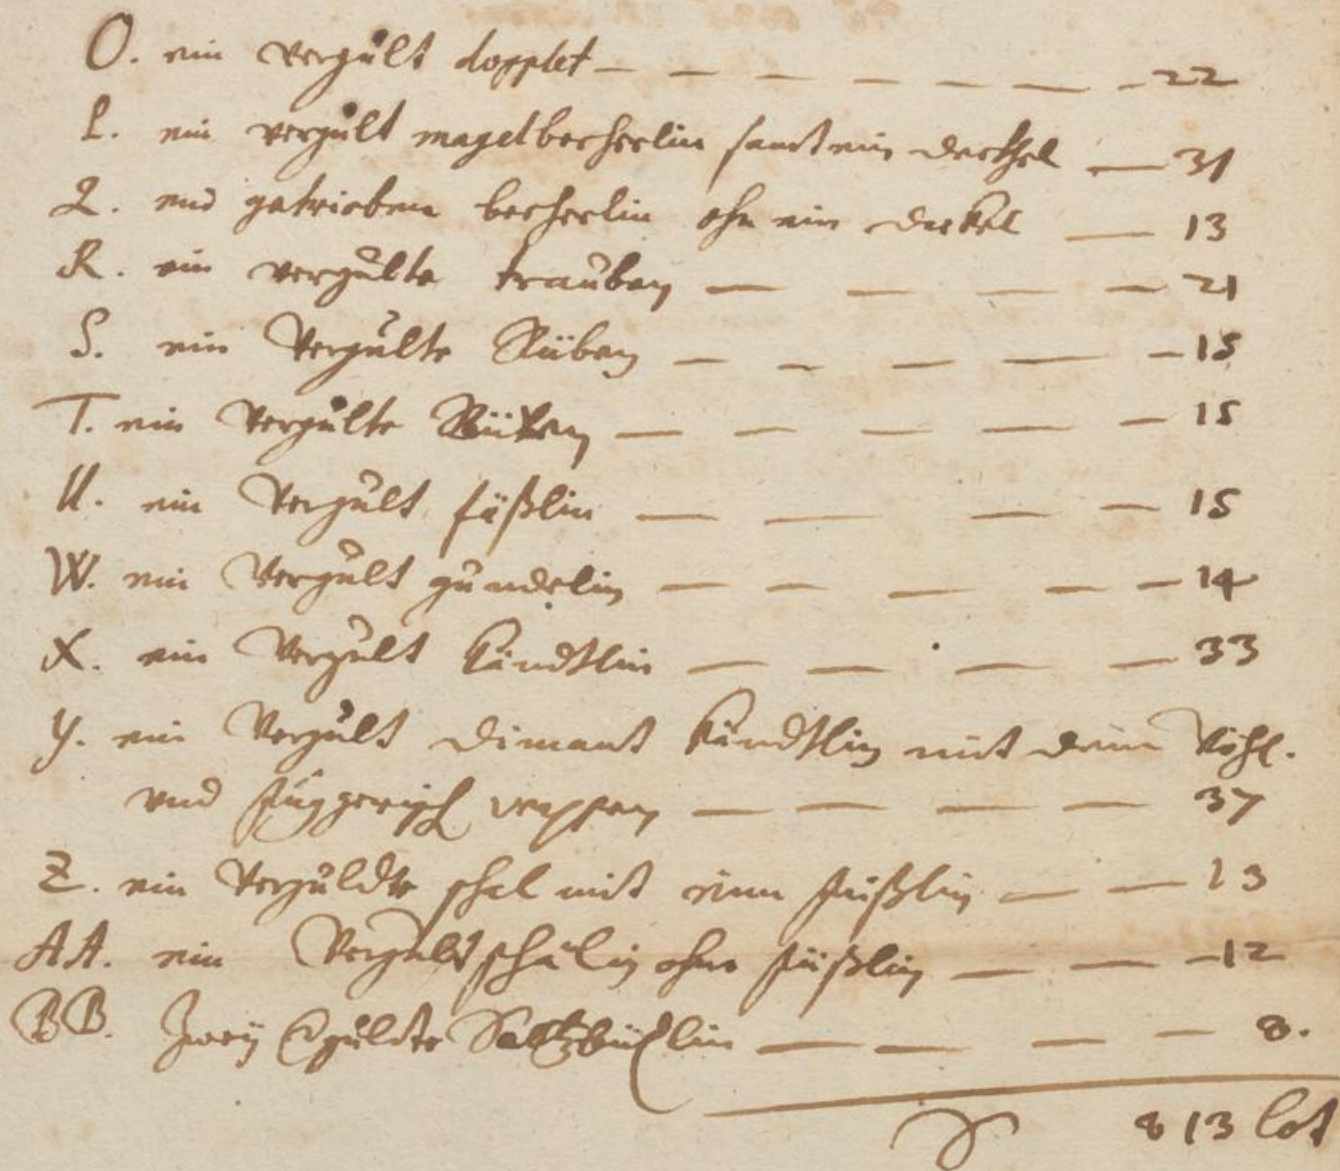 O. ein vergült dopplet — — — — — — — 22
P. ein vergült magelbecherlin samt ein deckhel — 31
Q. ein getrieben becherlin ohn ein deckel — 13
R. ein vergülte trauben — — — — 21
S. ein vergülte Rüben — — — — — 15
T. ein vergülte — — — — — 15
U. ein vergült fäßlin — — — — 15
W. ein vergült gundelin — — — — — 14
X. ein vergült kändtlin — — — — 33
Y. ein vergült dimant kändtlin mit dem
und fuggerisch wappen — — — — 37
Z. ein vergüldte schal mit einem füeßlin — — 13
AA. ein vergült schälin ohne füeßlin — — — 12
BB. Zwey vergüldte — — — — 8.
813 lot